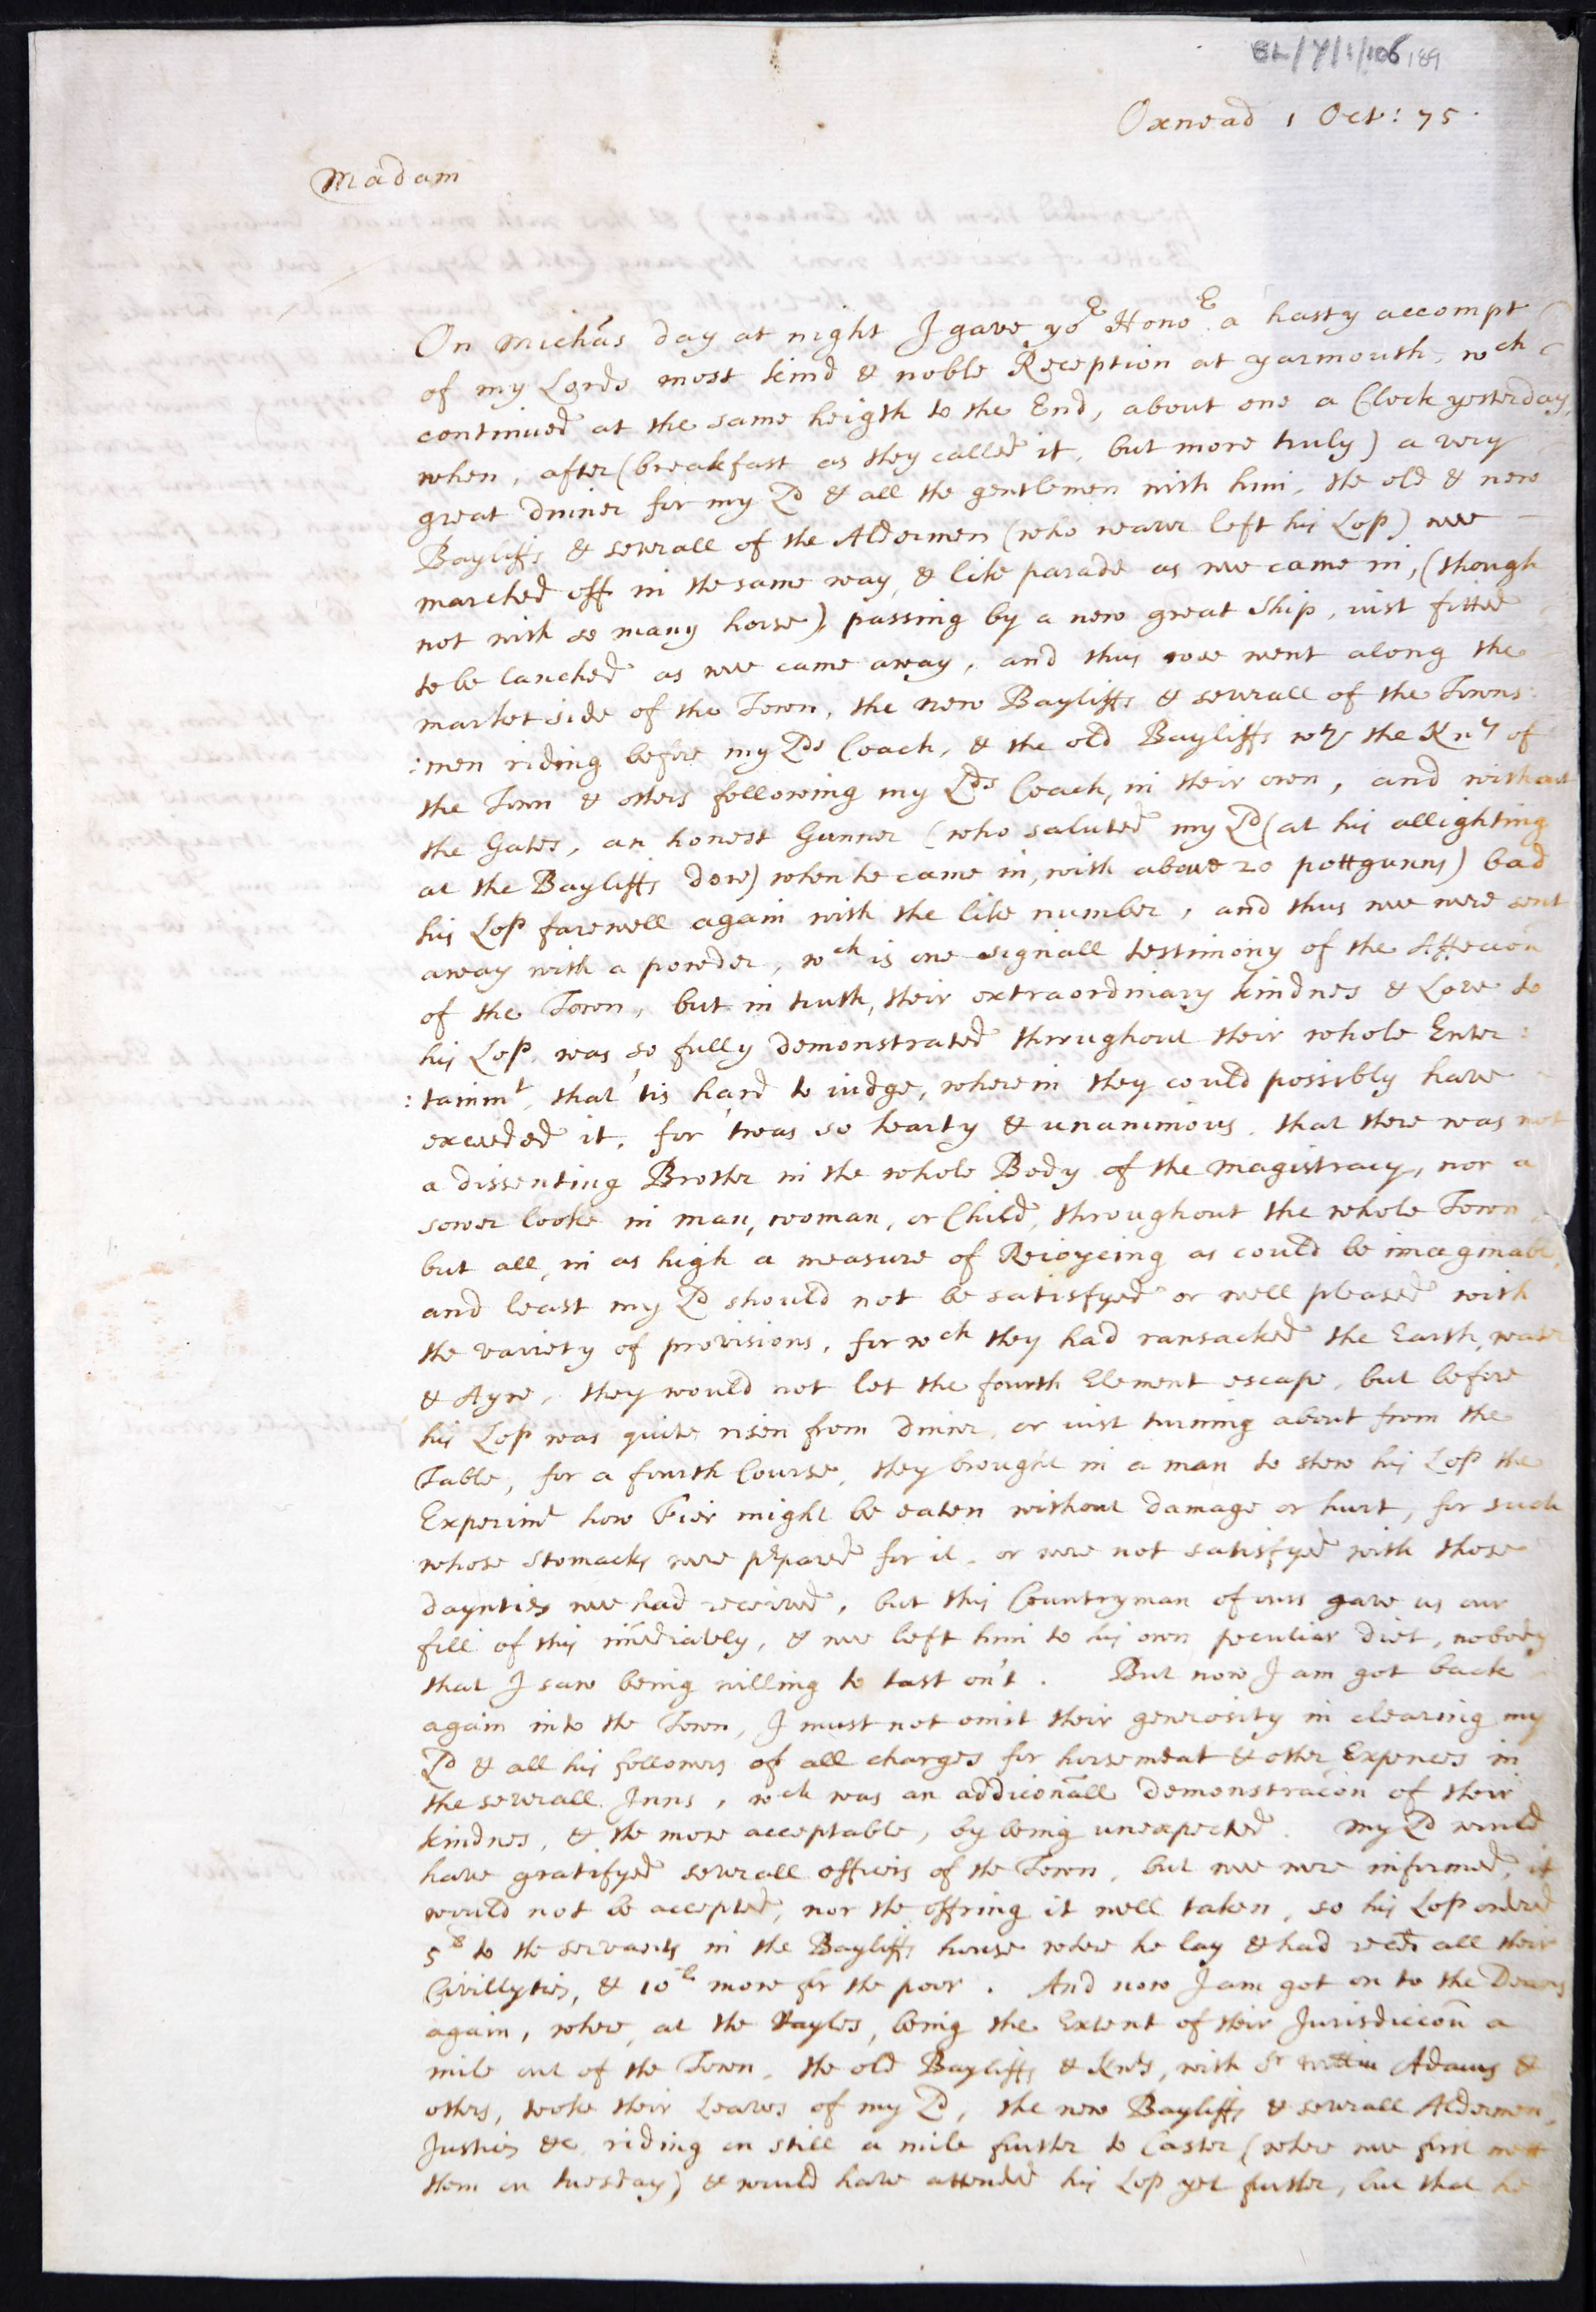 BL/Y/1/106 189
Oxnead 1 Oct: 75.
Madam
On Michãs day at night I gave yor Honor a hasty accompt
of my Lords most kind & noble Reception at yarmouth, wch
continued at the same heigth to the End, about one a Clock yesterday,
when, after (breakfast as they called it, but more truly) a very
great dinner for my Ld & all the gentlemen with him, the old & new
Bayliffs & severall of the Aldermen (who neaver left his Lop) wee
marched off in the same way, & like parade as wee came in, (though
not with so many horse) passing by a new great Ship, iust fitted
to be lanched as wee came away, and thus wee went along the
market side of the Town, the new Bayliffs & severall of the Towns:
:men riding before my Lds Coach, & the old Bayliffs wth the Knts of
the Town & others following my Lds Coach, in their own, and without
the Gates, an honest Gunner (who saluted my Ld (at his allighting
at the Bayliffs dore) when he came in, with above 20 pottgunns) bad
his Lop farewell again with the like number, and thus wee were sent
away with a powder, wch is one signiall testimony of the Affeccõn
of the Town, but in truth, their extraordinary kindnes & Love to
his Lop. was so fully demonstrated throughout their whole Enter:
:tainmt, that 'tis hard to iudge, wherein they could possibly have
exceeded it, for 'twas so hearty & unanimous, that there was not
a dissenting Brother in the whole Body of the Magistracy, nor a
sower looke in man, woman, or Child, throughout the whole Town,
but all, in as high a measure of Reioyceing as could be imaginable,
and least my Ld should not be satisfyed or well pleased with
the variety of provisions, for wch they had ransacked the Earth, water
& Ayre, they would not let the fourth Element escape, but before
his Lop was quite risen from dinner, or iust turning about from the
Table, for a fourth Course, they brought in a man to shew his Lop the
Experimt how Fier might be eaten without damage or hurt, for such
whose stomacks were pepared for it, or were not satisfyed with those
daynties wee had received, but this Countryman of ours gave us our
fill of this im̃ediately, & wee left him to his own peculiar diet, nobody
that I saw being willing to tast on't. But now I am got back
again into the Town, I must not omist their generosity in clearing my
Ld & all his followers of all charges for horsemeat & other Expences in
the severall Inns, wch was an addicõnall demonstracõn of their
kindnes, & the more acceptable, by being unexpected. My Ld would
have gratifyed severall officers of the Town, but wee were informed, it
would not be accepted, nor the offring it well taken, so his Lop ordered
5l to the servants in the Bayliffs house where he lay & had recd all their
Civillyties, & 10l more for the poor. And now I am got on to the Deans
again, where, at the Rayles, being the Extent of their Jurisdiccõn a
mile out of the Town, the old Bayliffs & Knts, with Sr Adams &
others, tooke their Leaves of my Ld, the new Bayliffs & severall Aldermen,
Justices &c, riding on still a mile further to Caster (where wee first mett
them on tuesday) & would have attended his Lop yet further, but that he